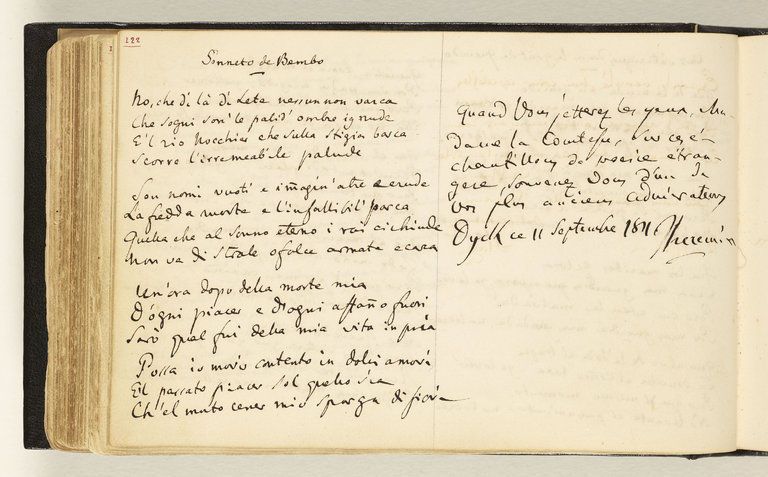 122
Sonneto de Bembo
No, che di là di Lete nessun non varca
Che sogni son' le palid' ombre ignude
E'l rio Nocchier che sulla Stigia barca
Scorre l'irremeabile palude
Son nomi vuoti e imagin' atre e crude
La fredda morte e l'infallibil' parca
Quella che al sonno eterno i rai ci chiude
Non va di strale o falce armata e carca
Un'ora dopo della morte mia
D'ogni piacer e d'ogni affaño fuori
Sarò qual fui della mia vita in pria
Possa io morir contento in dolci amori
E'l passato piacer sol quello sia
Ch'el muto cener mio sparga di fiori
Quand Vous jetterez les yeux, Ma-
dame la Comtesse, sur ces é-
chantillons de poesie étran-
gere, souvenez Vous d'un de
vos plus anciens admirateurs
Dyck ce 11 Septembre 1811
Theremin